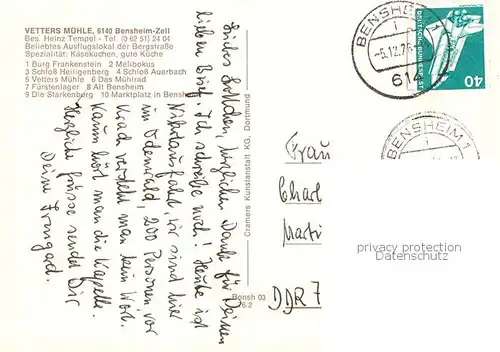 VETTERS MÜHLE, 6140 Bensheim-Zell
Bes. Heinz Tempel - Tel. (0 62 51) 24 04
Beliebtes Ausflugslokal der Bergstraße
Spezialität: Käsekuchen, gute Küche
1 Burg Frankenstein 2 Melibokus
3 Schloß Heiligenberg 4 Schloß Auerbach
5 Vetters Mühle 6 Das Mühlrad
7 Fürstenlager 8 Alt Bensheim
9 Die Starkenburg 10 Marktplatz in Bensheim
herzlichen Dank für Deinen
lieben Brief. Ich schreibe noch! Heute ist
Nikolausfahrt, wir sind hier
im Odenwald, 200 Personen, vor
Krach versteht man kein Wort.
Kaum hört man die Kapelle.
Herzliche Grüsse sendet Dir
Deine Irmgard.
Cramers Kunstanstalt KG, Dortmund
Bensh 03
Frau
Charl
Marti
DDR 7
BENSHEIM 1
-5.12.76
614
DEUTSCHE BUNDESPOST
40
BENSHEIM 1
privacy protection
Datenschutz